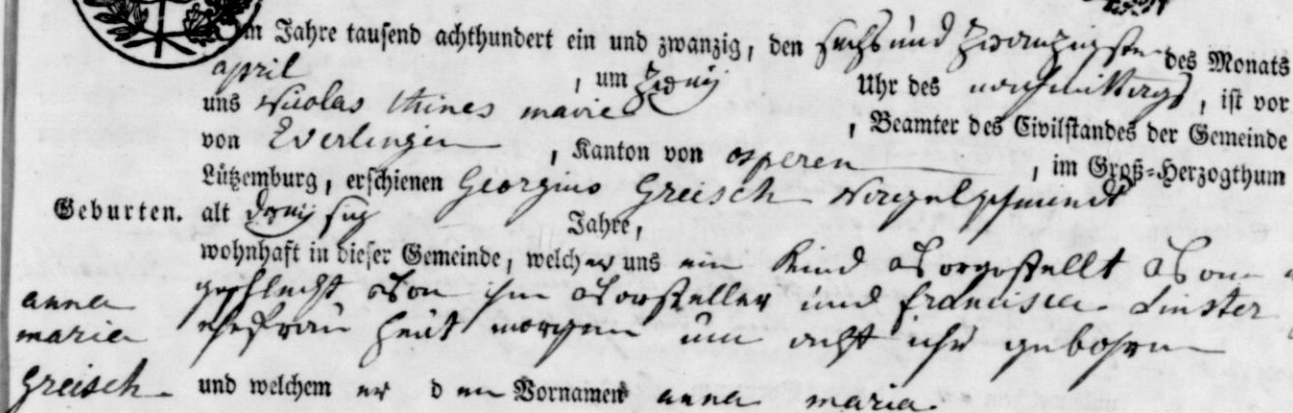 Im Jahre tausend achthundert ein und zwanzig, den sechs und zwanzigsten des Monats
april, um zwey Uhr des nachmittags, ist vor
uns Nicolas thines marie, Beamter des Civilstandes der Gemeinde
von Everlingen, Kanton von osperen, im Groß-Herzogthum
Lützemburg, erschienen Georgius Greisch Nagelschmidt
Geburten.
alt dreysig Jahre,
wohnhaft in dieser Gemeinde, welcher uns ein Kind vorgestellt von
geschlecht von ihm Vorsteller und francisca Linster
ehefrau heut morgen um acht uhr gebohren
anna
maria
Greisch
und welchem er den Vornamen anna maria